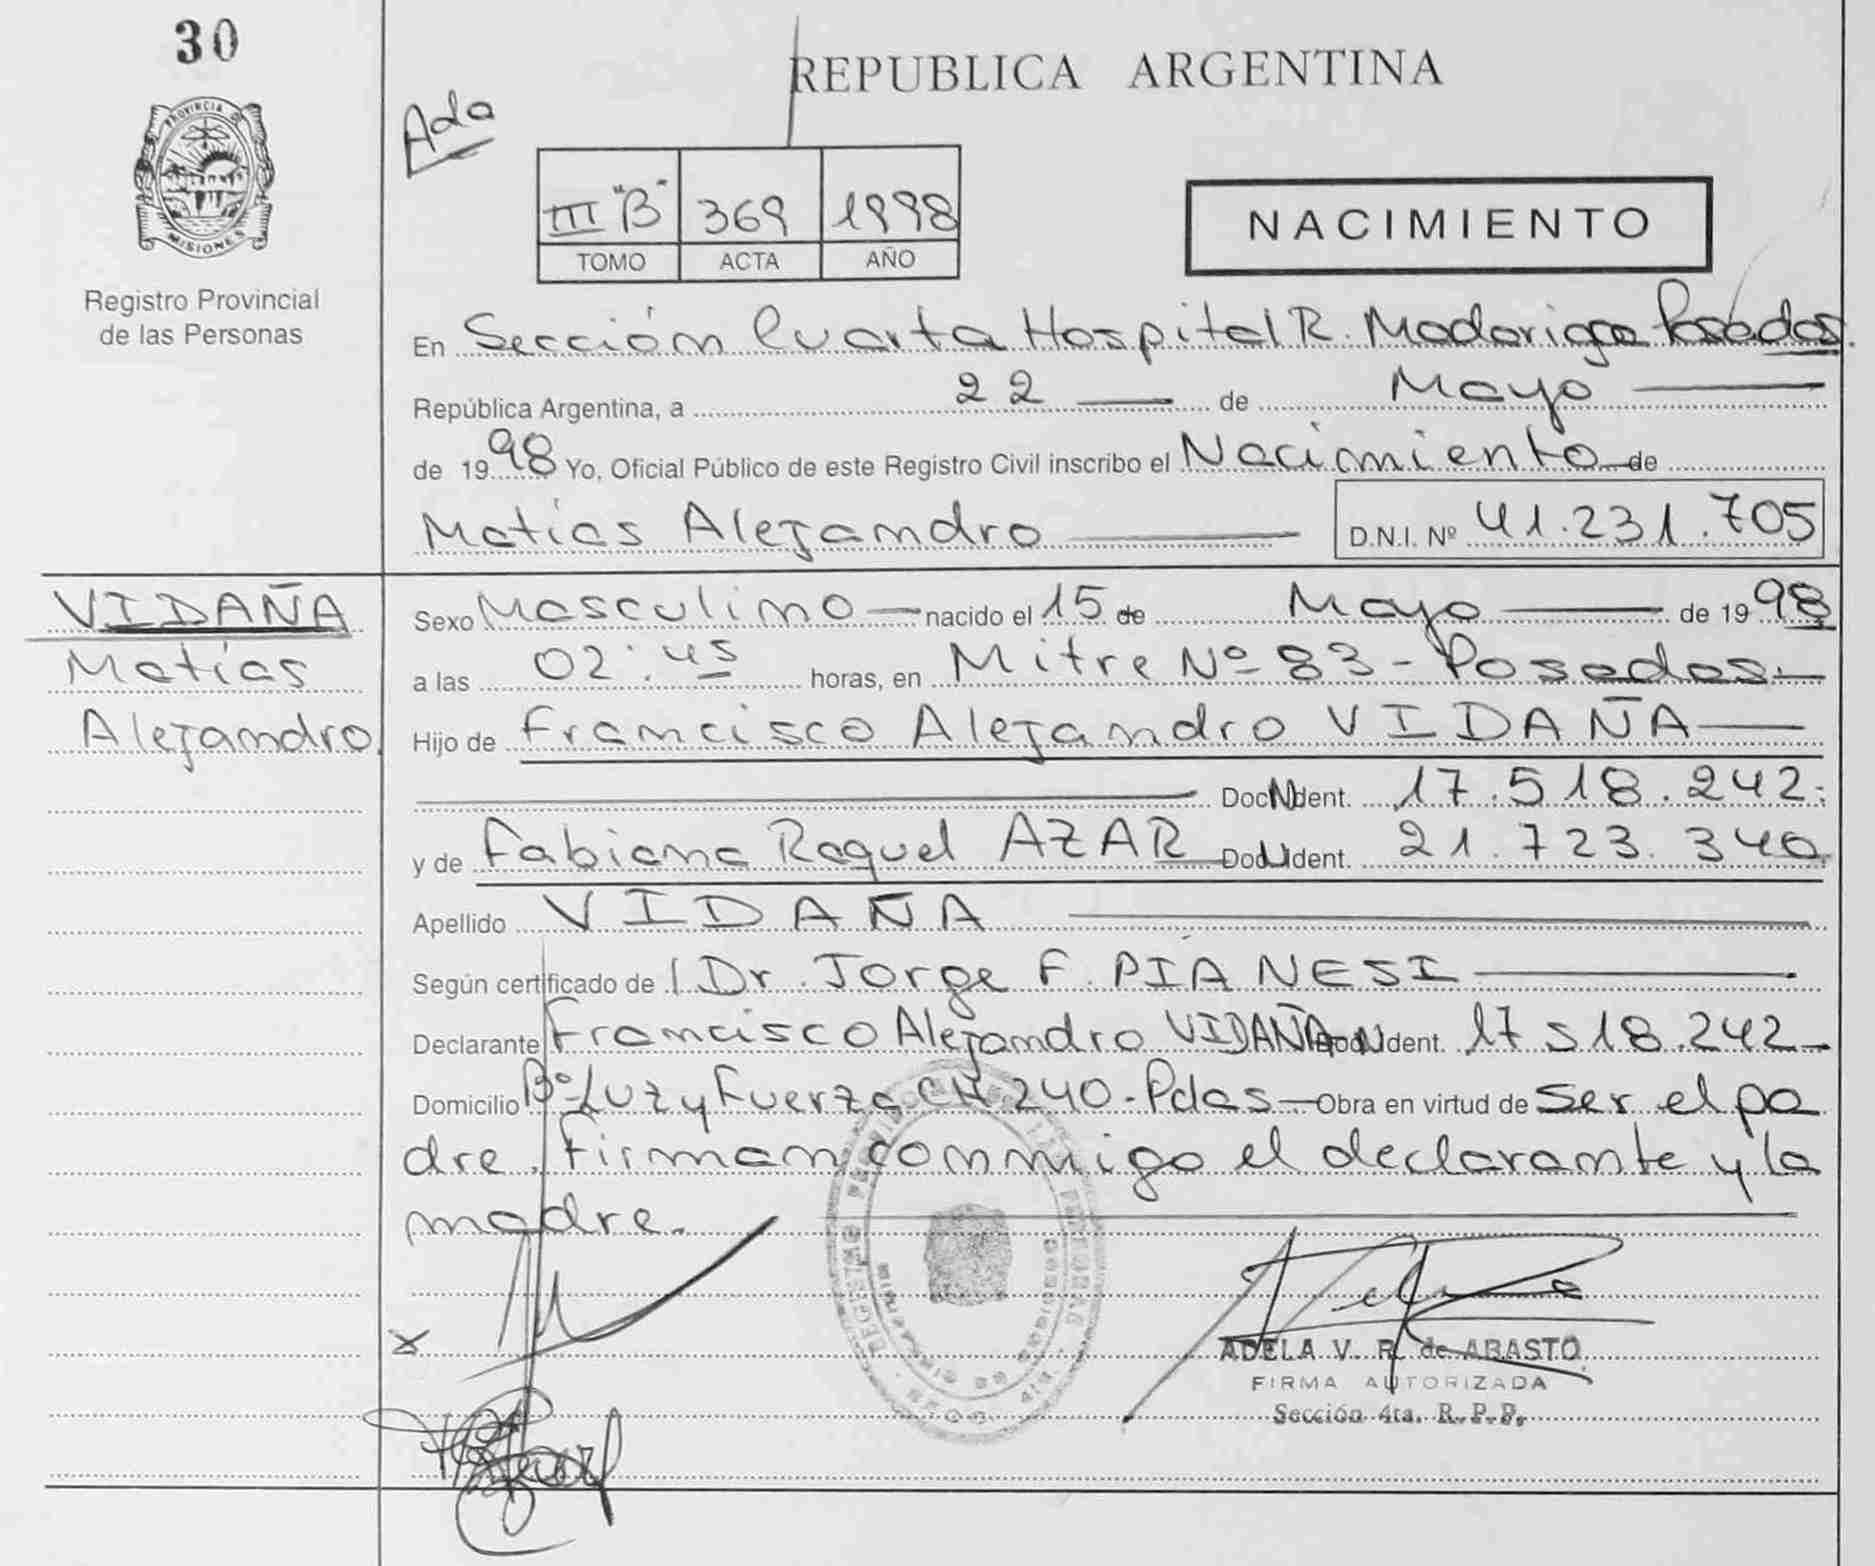 30
PROVINCIA DE
MISIONES
Registro Provincial
de las Personas
REPUBLICA ARGENTINA
Ada
III "B" 369 1998
TOMO ACTA AÑO
NACIMIENTO
En Sección Cuarta Hospital R. Madariaga Posadas.
República Argentina, a 22 — de Mayo —
de 1998 Yo, Oficial Público de este Registro Civil inscribo el Nacimiento de
Matías Alejandro — D.N.I. Nº 41.231.705
VIDAÑA
Matías
Alejandro
Sexo Masculino — nacido el 15 de Mayo — de 1998
a las 02:45 horas, en Mitre Nº 83 - Posadas.—
Hijo de Francisco Alejandro VIDAÑA —
— Doc. Ident. 17.518.242.
y de Fabiana Raquel AZAR — Doc. Ident. 21.723.340
Apellido VIDAÑA —
Según certificado de Dr. Jorge F. PIANESI —
Declarante Francisco Alejandro VIDAÑA Doc. Ident. 17 518.242 —
Domicilio Bº Luz y Fuerza CH 240 - Pdas — Obra en virtud de Ser el pa
dre. Firman conmigo el declarante y la
madre. —
ADELA V. R. de ABASTO
FIRMA AUTORIZADA
Sección 4ta. R.P.P.